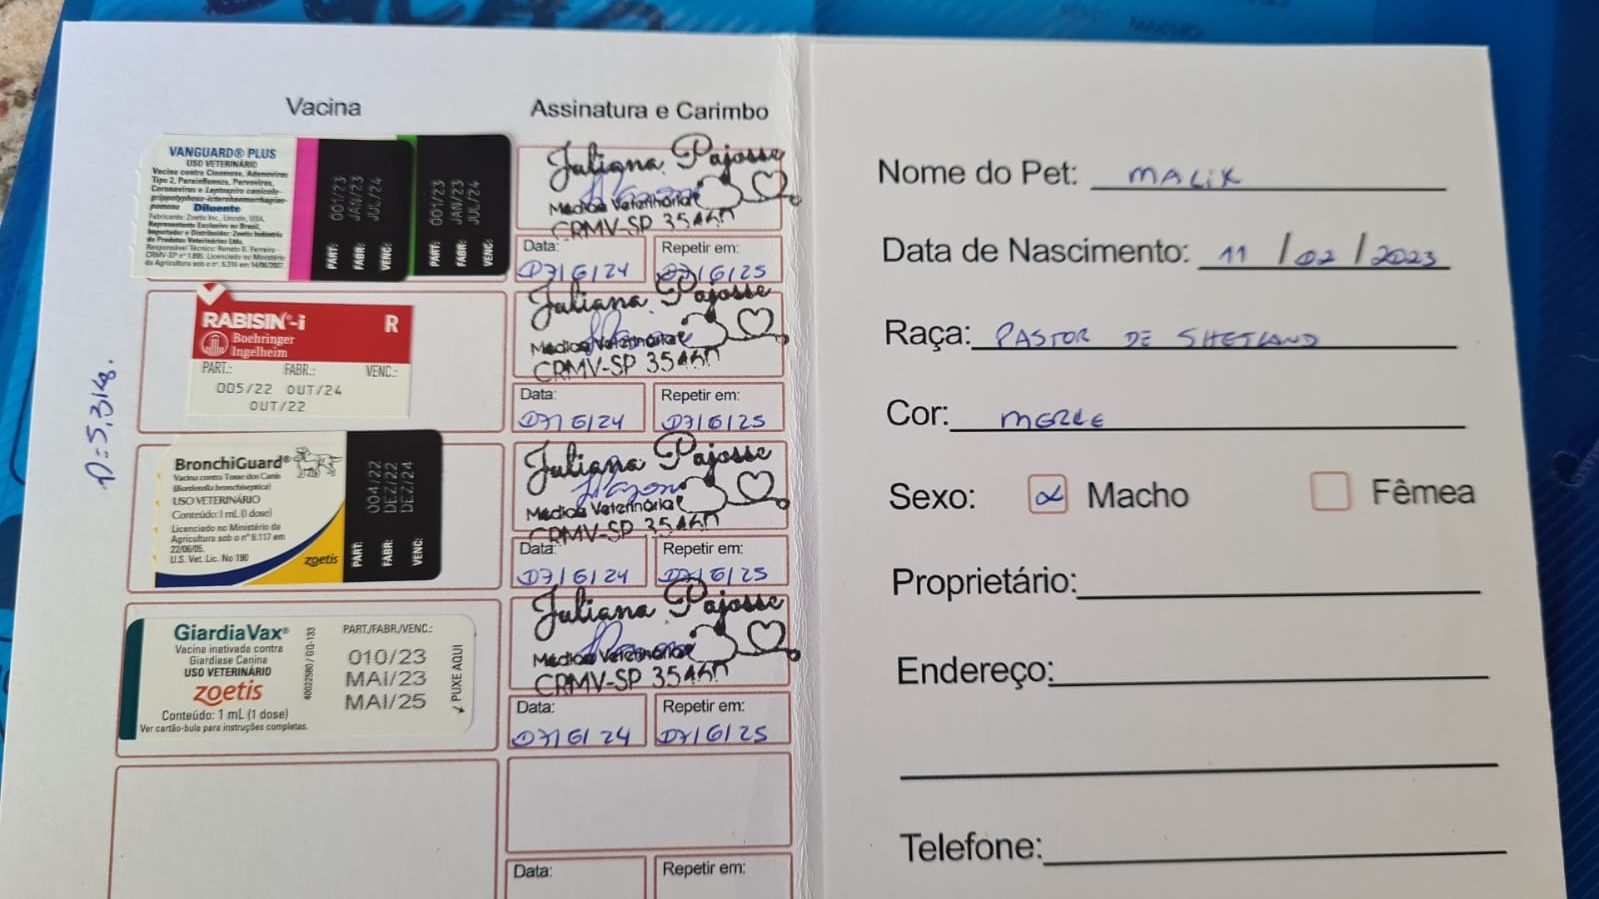 Vacina
Assinatura e Carimbo
VANGUARD® PLUS
USO VETERINÁRIO
Vacina contra Cinomose, Adenovírus
Tipo 2, Parainfluenza, Parvovírus,
Coronavírus e Leptospira canicola-
grippotyphosa-icterohaemorrhagiae-
pomona
Diluente
Fabricante: Zoetis Inc., Lincoln, USA.
Representante Exclusivo no Brasil,
Importador e Distribuidor: Zoetis Indústria
de Produtos Veterinários Ltda.
Responsável Técnico: Renato B. Ferreira
CRMV-SP nº Licenciado no Ministério
da Agricultura sob o nº em 14/06/2007.
PART: 001/23
FABR: JAN/23
VENC: JUL/24
PART: 001/23
FABR: JAN/23
VENC: JUL/24
Juliana Pajosse
Médica Veterinária
CRMV-SP 35460
Data: 07/6/24
Repetir em: 07/6/25
RABISIN®-i R
Boehringer
Ingelheim
PART.: FABR.: VENC.:
005/22 OUT/24
OUT/22
Juliana Pajosse
Médica Veterinária
CRMV-SP 35460
Data: 07/6/24
Repetir em: 07/6/25
P=5,3kg.
BronchiGuard®
Vacina contra Tosse dos Canis
(Bordetella bronchiseptica)
USO VETERINÁRIO
Conteúdo: 1 mL (1 dose)
Licenciado no Ministério da
Agricultura sob o nº 9.117 em
22/06/05.
U.S. Vet. Lic. No 190
zoetis
PART: 004/22
FABR: DEZ/22
VENC: DEZ/24
Juliana Pajosse
Médica Veterinária
CRMV-SP 35460
Data: 07/6/24
Repetir em: 07/6/25
GiardiaVax®
Vacina inativada contra
Giardíase Canina
USO VETERINÁRIO
zoetis
Conteúdo: 1 mL (1 dose)
Ver cartão-bula para instruções completas.
40022580 / GO-133
PART./FABR./VENC.:
010/23
MAI/23
MAI/25
PUXE AQUI
Juliana Pajosse
Médica Veterinária
CRMV-SP 35460
Data: 07/6/24
Repetir em: 07/6/25
Data:
Repetir em:
Nome do Pet: MALIK
Data de Nascimento: 11 / 02 / 2023
Raça: PASTOR DE SHETLAND
Cor: MERLE
Sexo: Macho Fêmea
Proprietário:
Endereço:
Telefone: